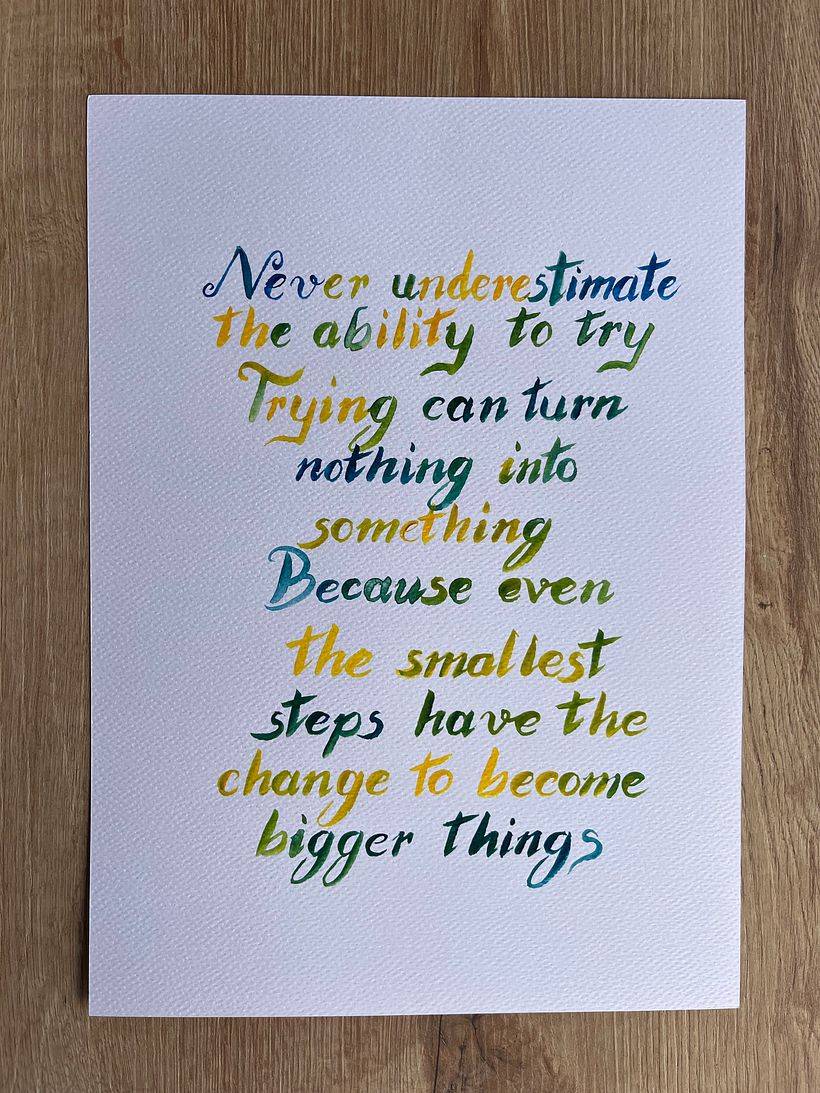 Never underestimate
the ability to try
Trying can turn
nothing into
something
Because even
the smallest
steps have the
change to become
bigger things